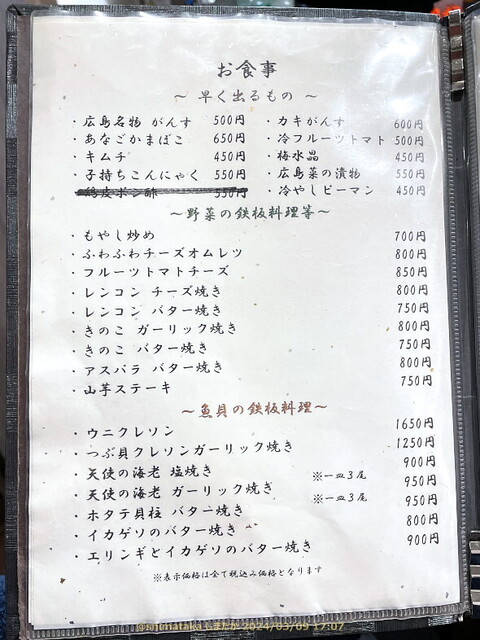 お食事
～ 早く出るもの ～
・広島名物 がんす 500円
・あなごかまぼこ 650円
・キムチ 450円
・子持ちこんにゃく 550円
・鶏皮ポン酢 550円
・カキがんす 600円
・冷フルーツトマト 500円
・梅水晶 450円
・広島菜の漬物 550円
・冷やしピーマン 450円
～野菜の鉄板料理等～
・もやし炒め 700円
・ふわふわチーズオムレツ 800円
・フルーツトマトチーズ 850円
・レンコン チーズ焼き 800円
・レンコン バター焼き 750円
・きのこ ガーリック焼き 800円
・きのこ バター焼き 750円
・アスパラ バター焼き 800円
・山芋ステーキ 750円
～魚貝の鉄板料理～
・ウニクレソン 1650円
・つぶ貝クレソンガーリック焼き 1250円
・天使の海老 塩焼き ※一皿3尾 900円
・天使の海老 ガーリック焼き ※一皿3尾 950円
・ホタテ貝柱 バター焼き 950円
・イカゲソのバター焼き 800円
・エリンギとイカゲソのバター焼き 900円
※表示価格は全て税込み価格となります
2024/03/09 17:07